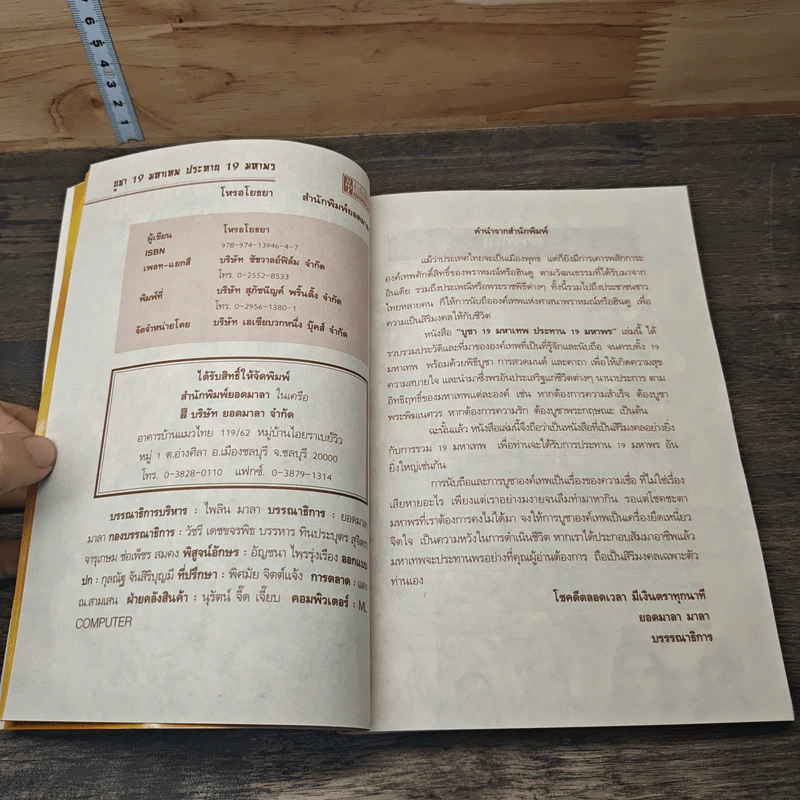 6 5 4 3 2 1
บูชา 19 มหาเทพ ประทาน 19 มหาพร
โหรอโยธยา สำนักพิมพ์ยอดมาลา
ผู้เขียน โหรอโยธยา
ISBN 978-974-13946-4-7
เพลท-แยกสี บริษัท ชัชวาลย์ฟิล์ม จำกัด
โทร. 0-2552-8533
พิมพ์ที่ บริษัท สุภัชนิญค์ พริ้นติ้ง จำกัด
โทร. 0-2956-1380-1
จัดจำหน่ายโดย บริษัท เอเซียบวกหนึ่ง บุ๊คส์ จำกัด
ได้รับสิทธิ์ให้จัดพิมพ์
สำนักพิมพ์ยอดมาลา ในเครือ
บริษัท ยอดมาลา จำกัด
อาคารบ้านแมวไทย 119/62 หมู่บ้านไอยราเบย์วิว
หมู่ 1 ต.อ่างศิลา อ.เมืองชลบุรี จ.ชลบุรี 20000
โทร. 0-3828-0110 แฟกซ์. 0-3879-1314
บรรณาธิการบริหาร : ไพลิน มาลา บรรณาธิการ : ยอดมาลา
มาลา กองบรรณาธิการ : วัชรี เดชขจรพิธ บรรหาร ทินประบุตร สุจิตรา
จารุเกษม ช่อเพ็ชร สมคง พิสูจน์อักษร : อัญชนา ไพรรุ่งเรือง ออกแบบ
ปก : กุลณัฐ จันสิริบุญมี ที่ปรึกษา : พิศมัย จิตต์แจ้ง การตลาด : แดง
ณ.สามเสน ฝ่ายคลังสินค้า : นุรัตน์ จี๊ด เจี๊ยบ คอมพิวเตอร์ : ML
COMPUTER
คำนำจากสำนักพิมพ์
แม้ว่าประเทศไทยจะเป็นเมืองพุทธ แต่ก็ยังมีการเคารพสักการะ
องค์เทพศักดิ์สิทธิ์ของพราหมณ์หรือฮินดู ตามวัฒนธรรมที่ได้รับมาจาก
อินเดีย รวมถึงประเพณีหรือพระราชพิธีต่างๆ ทั้งนี้รวมไปถึงประชาชนชาว
ไทยหลายคน ก็ให้การนับถือองค์เทพแห่งศาสนาพราหมณ์หรือฮินดู เพื่อ
ความเป็นสิริมงคลให้กับชีวิต
หนังสือ "บูชา 19 มหาเทพ ประทาน 19 มหาพร" เล่มนี้ ได้
รวบรวมประวัติและที่มาขององค์เทพที่เป็นที่รู้จักและนับถือ จนครบทั้ง 19
มหาเทพ พร้อมด้วยพิธีบูชา การสวดมนต์ และคาถา เพื่อให้เกิดความสุข
ความสบายใจ และนำมาซึ่งพรอันประเสริฐแก่ชีวิตต่างๆ นานาประการ ตาม
อิทธิฤทธิ์ของมหาเทพแต่ละองค์ เช่น หากต้องการความสำเร็จ ต้องบูชา
พระพิฆเนศวร หากต้องการความรัก ต้องบูชาพระกฤษณะ เป็นต้น
ฉะนั้นแล้ว หนังสือเล่มนี้จึงถือว่าเป็นหนังสือที่เป็นสิริมงคลอย่างยิ่ง
กับการรวม 19 มหาเทพ เพื่อท่านจะได้รับการประทาน 19 มหาพร อัน
ยิ่งใหญ่เช่นกัน
การนับถือและการบูชาองค์เทพเป็นเรื่องของความเชื่อ ที่ไม่ใช่เรื่อง
เสียหายอะไร เพียงแต่เราอย่างมงายจนลืมทำมาหากิน รอแต่โชคชะตา
มหาพรที่เราต้องการคงไม่ได้มา จงให้การบูชาองค์เทพเป็นเครื่องยึดเหนี่ยว
จิตใจ เป็นความหวังในการดำเนินชีวิต หากเราได้ประกอบสัมมาอาชีพแล้ว
มหาเทพจะประทานพรอย่างที่คุณผู้อ่านต้องการ ถือเป็นสิริมงคลเฉพาะตัว
ท่านเอง
โชคดีตลอดเวลา มีเงินตราทุกนาที
ยอดมาลา มาลา
บรรณาธิการ